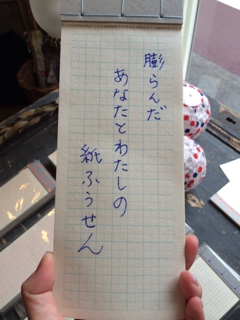 膨らんだ
あなたとわたしの
紙ふうせん